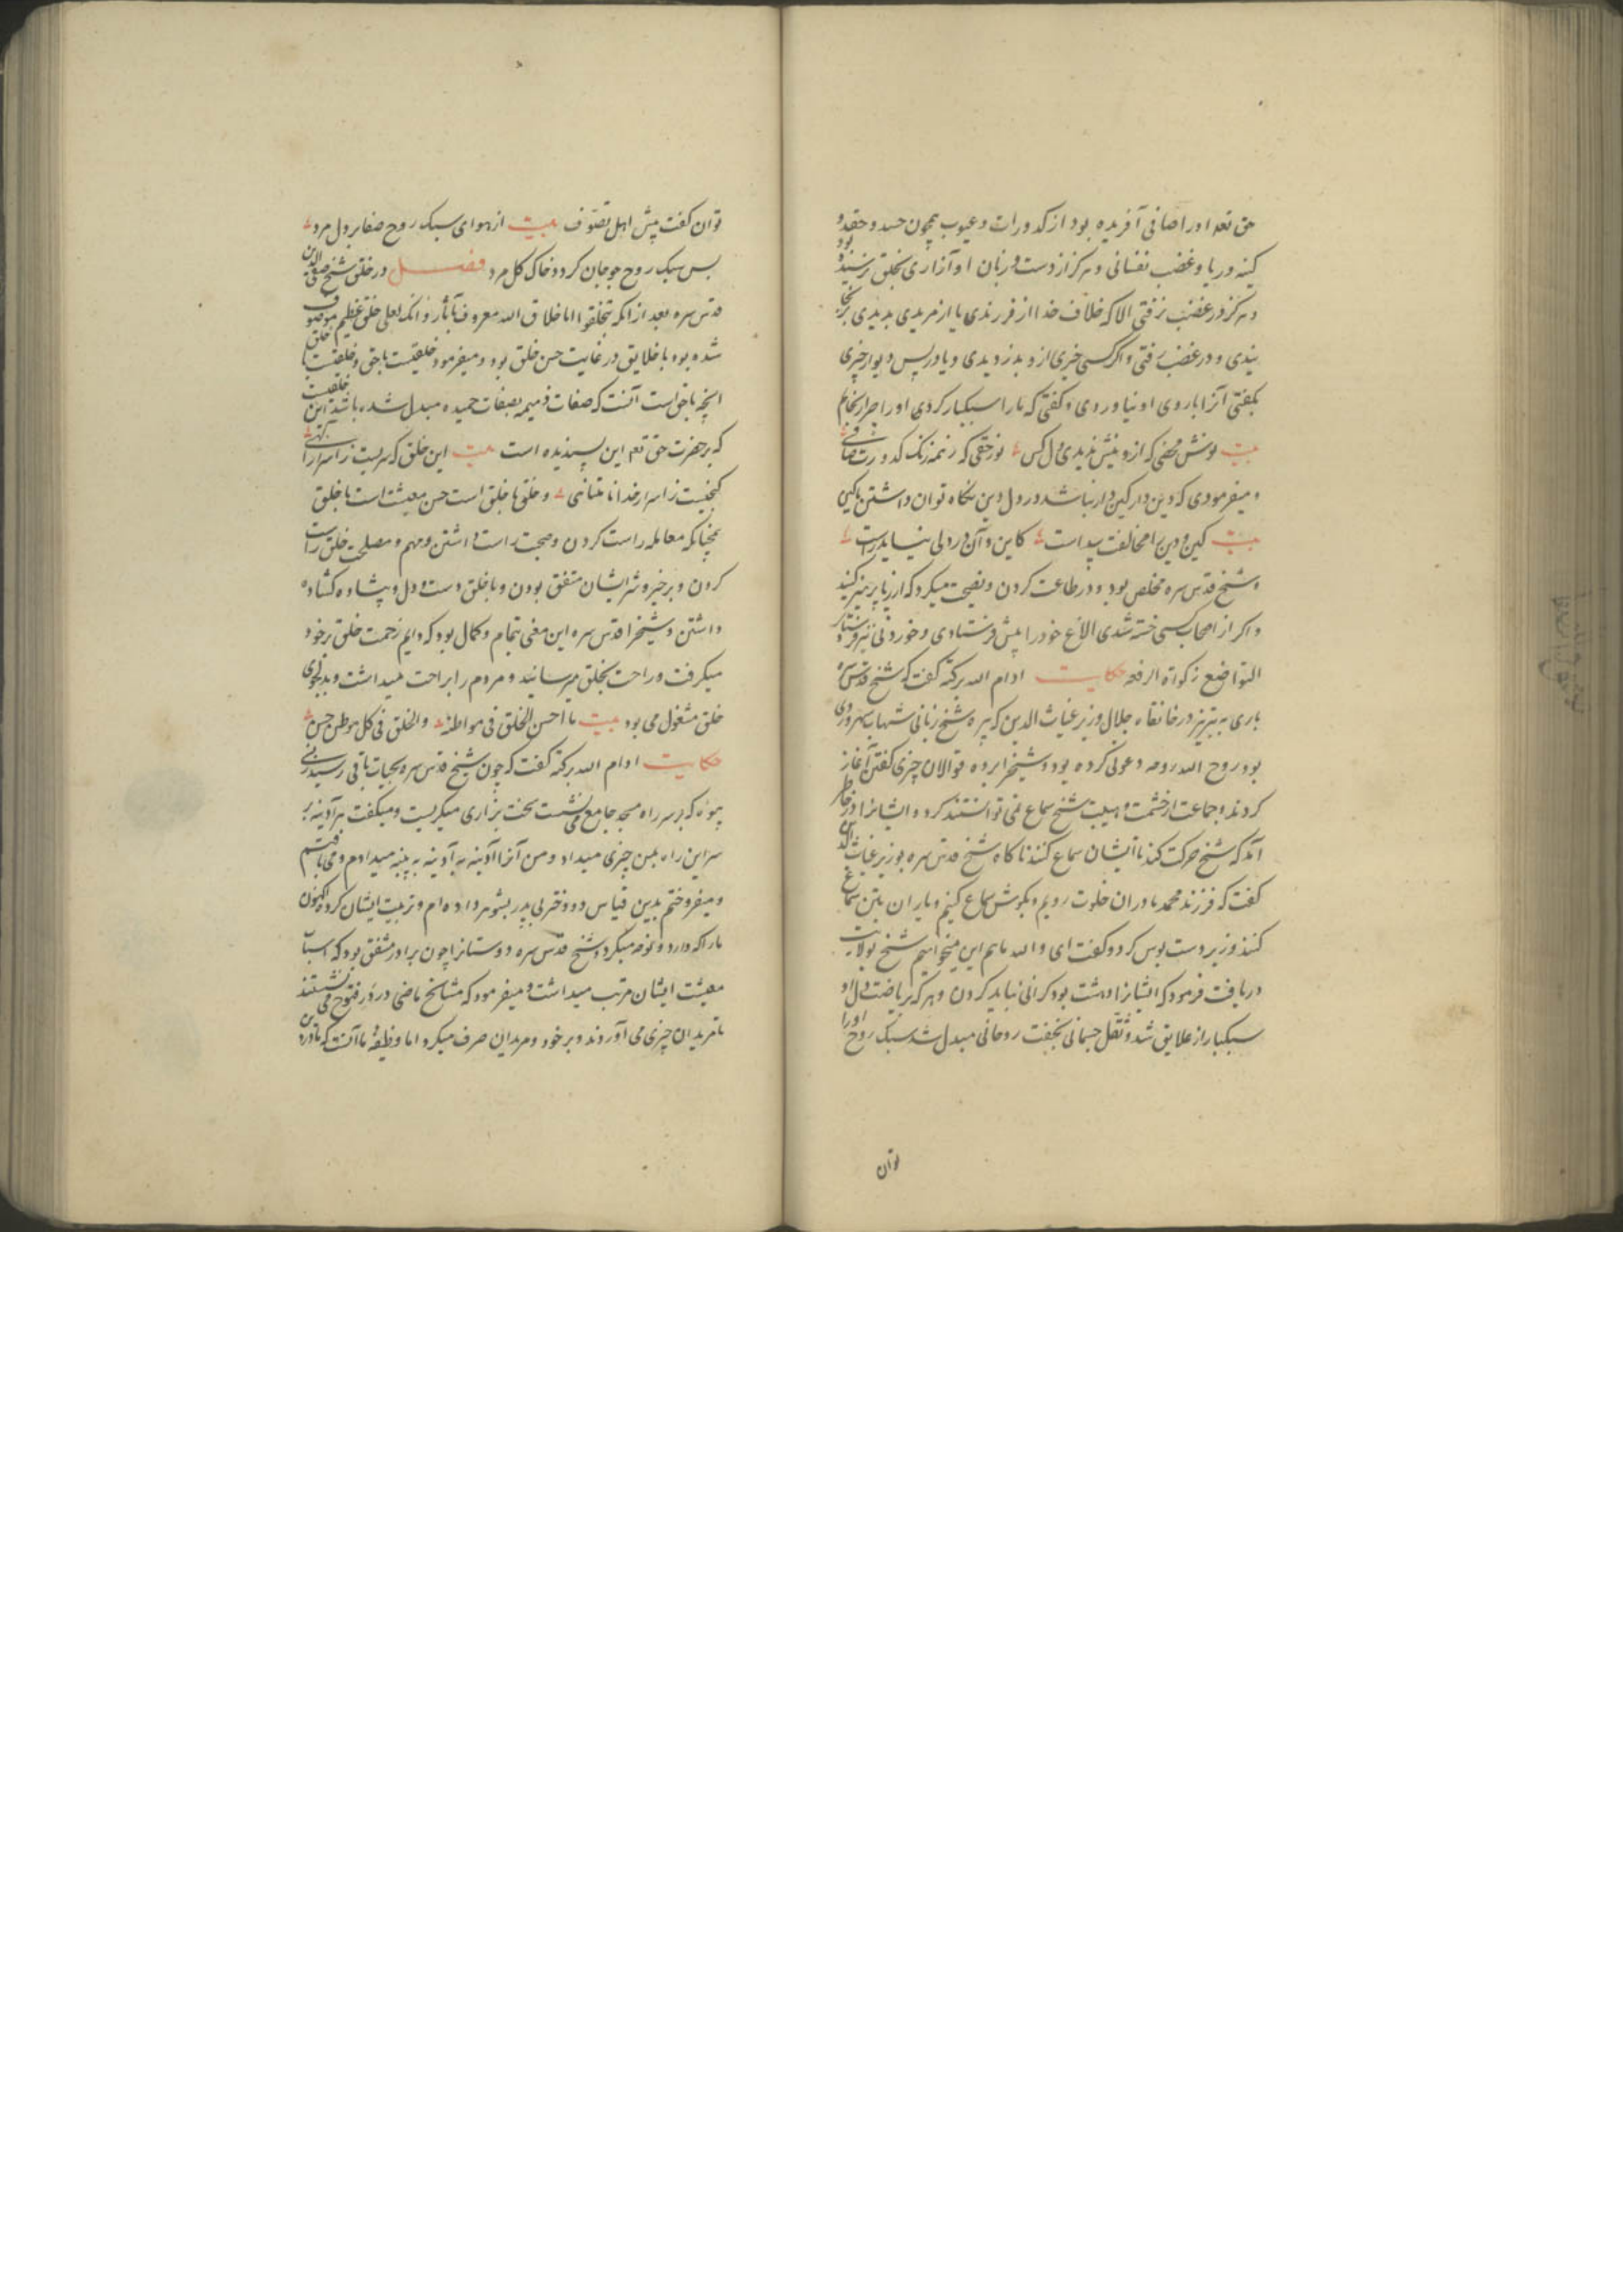 حق تعه او را صافی آفریده بود از کدورات و عیوب همچون حسد و حقد و
کینه و ریا و غضب نفسانی و هرگز از دست و زبان او آزاری بخلق نرسیده بود
و هرگز در غضب نرفتی الا که خلاف خدا از فرزندی یا از مریدی بدیدی
بندی و در غضب رفتی و اگر کسی چیزی ازو بدزدیدی و یا در پس دیوار چیزی
بگفتی آنرا با روی او نیاوردی و گفتی که بارا سبکبار کردی او را
بیت نوش محضی که ازو نیش ندیدی دل کس نور حقی که نه زنگ کدورت
و میفرمودی که دین دار کین دار نباشد در دل دین نگاه توان داشتن یا کین
بیت کین و دین را مخالفت پیداست کاین و آن در دلی نیاید راست
و شیخ قدس سره مخلص بود و در طاعت کردن و نصیحت میکرد که از ریا پرهیز کنید
و اگر از اصحاب کسی خسته شدی الاغ خود را پیش فرستادی و خوردنی نیز فرستادی
التواضع زکواة الرفعه حکایت ادام الله برکته گفت که شیخ قدس سره
باری به تبریز در خانقاه جلال وزیر غیاث الدین که پیره شیخ زبانی شهاب سهروردی
بود روح الله روحه دعوتی کرده بود و شیخ را برده قوالان چیزی گفتن آغاز
کردند و جماعت از حشمت و هیبت شیخ سماع نمی توانستند کرد و ایشانرا در خاطر
آمد که شیخ حرکت کند تا ایشان سماع کنند ناگاه شیخ قدس سره بوزیر غیاث الدین
گفت که فرزند محمد تا در آن خلوت رویم و بگوش سماع کنیم و یاران بتن سماع
کنند وزیر دست بوس کرد و گفت ای والله ما هم این میخواهیم شیخ بولایت
دریافت فرمود که ایشانرا وحشت بود گرانی نباید کردن و هر که بریاضت دل او
سبکبار از علایق شد و ثقل جسمانی بخفت روحانی مبدل شد سبک روح او را
توان
توان گفت پیش اهل تصوّف بیت از هوای سبک روح صفا بر دل مرد
پس سبک روح چو جان گردد خاک گل مرد فصل در خلق شیخ صفی الدین
قدس سره بعد از آنکه تخلقوا باخلاق الله معروف بآثار و انک لعلی خلق عظیم موصوف
شده بود با خلایق در غایت حسن خلق بود و میفرمود خلقیست با حق و خلقیست با خلق
آنچه با حق است آنست که صفات ذمیمه بصفات حمیده مبدل شده باشد این خلقیست
که بر حضرت حق تعه این پسندیده است بیت این خلق که سریست ز اسرار الهی
گنجیست ز اسرار خدا نامتناهی و خلق با خلق است حسن معیشت است با خلق
همچنانکه معامله راست کردن و صحبت راست داشتن و مهم و مصلحت خلق راست
کردن و بر خیر و شر ایشان متفق بودن و با خلق دست و دل و پیشا ده گشاده
داشتن و شیخرا قدس سره این معنی بتمام و کمال بود که دایم زحمت خلق بر خود
میگرفت و راحت بخلق میرسانید و مردم را براحت میداشت و بدلجوی
خلق مشغول می بود بیت ما احسن الخلق فی مواطنه والخلق فی کل موطن حسن
حکایت ادام الله برکته گفت که چون شیخ قدس سره بحیات باقی رسید زنی
بیوه که بر سر راه مسجد جامع می نشست سخت بزاری میگریست و میگفت هر آدینه بر
سر این راه بمن چیزی میداد و من آنرا آدینه به آدینه به پنبه میدادم و می یافتم
و میفروختم بدین قیاس دو دختر بی پدر بشوهر داده ام و تربیت ایشان کرده اکنون
مارا که دارد و نوحه میکرد و شیخ قدس سره دوستانرا چون برادر مشفق بود که اسباب
معیشت ایشان مرتب میداشت و میفرمود که مشایخ ماضی در در فتوح می نشستند
تا مریدان چیزی می آوردند و بر خود و مریدان صرف میکرد اما وظیفه ما آنست که